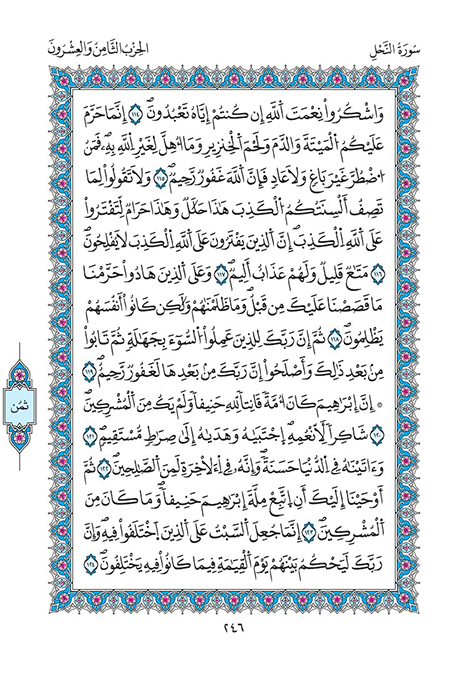 سورة النحل
الحزب الثامن والعشرون
وَاشْكُرُوا۟ نِعْمَتَ اَ۬للَّهِ إِن كُنتُمُۥٓ إِيَّاهُ تَعْبُدُونَۖ ١١٤ إِنَّمَا حَرَّمَ
عَلَيْكُمُ اُ۬لْمَيْتَةَ وَالدَّمَ وَلَحْمَ اَ۬لْخِنزِيرِ وَمَآ أُهِلَّ لِغَيْرِ اِ۬للَّهِ بِهِۦۖ فَمَنُ
اُ۟ضْطُرَّ غَيْرَ بَاغٖ وَلَا عَادٖ فَإِنَّ اَ۬للَّهَ غَفُورٞ رَّحِيمٞۖ ١١٥ وَلَا تَقُولُوا۟ لِمَا
تَصِفُ أَلْسِنَتُكُمُ اُ۬لْكَذِبَ هَٰذَا حَلَٰلٞ وَهَٰذَا حَرَامٞ لِّتَفْتَرُوا۟
عَلَى اَ۬للَّهِ اِ۬لْكَذِبَۖ إِنَّ اَ۬لذِينَ يَفْتَرُونَ عَلَى اَ۬للَّهِ اِ۬لْكَذِبَ لَا يُفْلِحُونَۖ
١١٦ مَتَٰعٞ قَلِيلٞ وَلَهُمْ عَذَابٌ أَلِيمٞۖ ١١٧ وَعَلَى اَ۬لذِينَ هَادُوا۟ حَرَّمْنَا
مَا قَصَصْنَا عَلَيْكَ مِن قَبْلُۖ وَمَا ظَلَمْنَٰهُمْ وَلَٰكِن كَانُوٓا۟ أَنفُسَهُمْ
يَظْلِمُونَۖ ١١٨ ثُمَّ إِنَّ رَبَّكَ لِلذِينَ عَمِلُوا۟ اُ۬لسُّوٓءَ بِجَهَٰلَةٖ ثُمَّ تَابُوا۟
مِنۢ بَعْدِ ذَٰلِكَ وَأَصْلَحُوٓا۟ إِنَّ رَبَّكَ مِنۢ بَعْدِهَا لَغَفُورٞ رَّحِيمٌۖ ١١٩
۞ إِنَّ إِبْرَٰهِيمَ كَانَ أُمَّةٗ قَانِتاٗ لِّلهِ حَنِيفاٗ وَلَمْ يَكُ مِنَ اَ۬لْمُشْرِكِينَۖ
١٢٠ شَاكِراٗ لِّأَنْعُمِهِۖ اِ۪جْتَبَىٰهُ وَهَدَىٰهُ إِلَىٰ صِرَٰطٖ مُّسْتَقِيمٖۖ ١٢١
وَءَاتَيْنَٰهُ فِے اِ۬لدُّنْيَا حَسَنَةٗۖ وَإِنَّهُۥ فِے اِ۬لَاخِرَةِ لَمِنَ اَ۬لصَّٰلِحِينَۖ ١٢٢ ثُمَّ
أَوْحَيْنَآ إِلَيْكَ أَنِ اِ۪تَّبِعْ مِلَّةَ إِبْرَٰهِيمَ حَنِيفاٗۖ وَمَا كَانَ مِنَ
اَ۬لْمُشْرِكِينَۖ ١٢٣ إِنَّمَا جُعِلَ اَ۬لسَّبْتُ عَلَى اَ۬لذِينَ اَ۪خْتَلَفُوا۟ فِيهِۖ وَإِنَّ
رَبَّكَ لَيَحْكُمُ بَيْنَهُمْ يَوْمَ اَ۬لْقِيَٰمَةِ فِيمَا كَانُوا۟ فِيهِ يَخْتَلِفُونَۖ ١٢٤
ثمن
٢٤٦